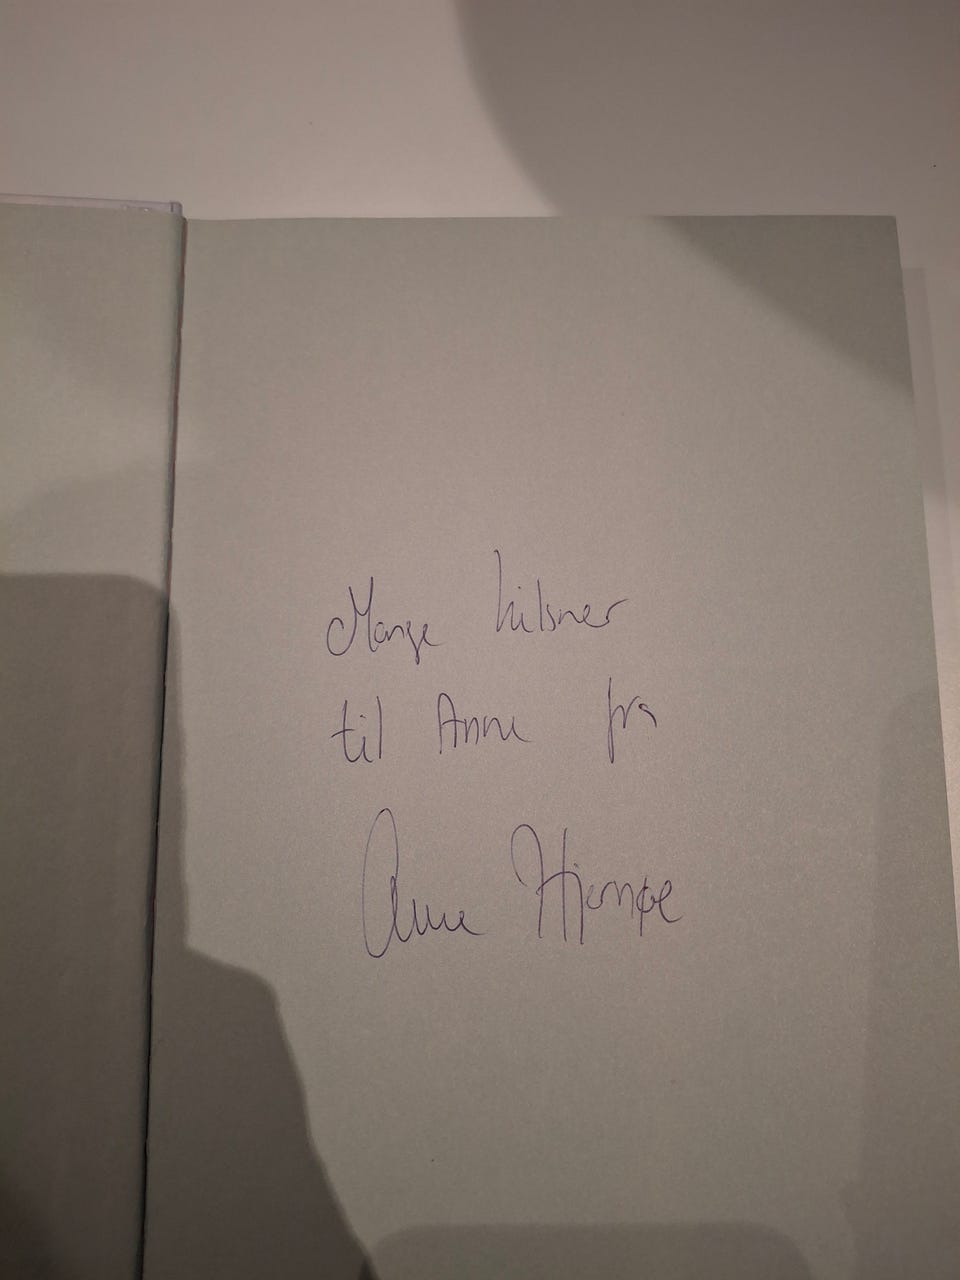 Mange hilsner
til Anne fra
Anne